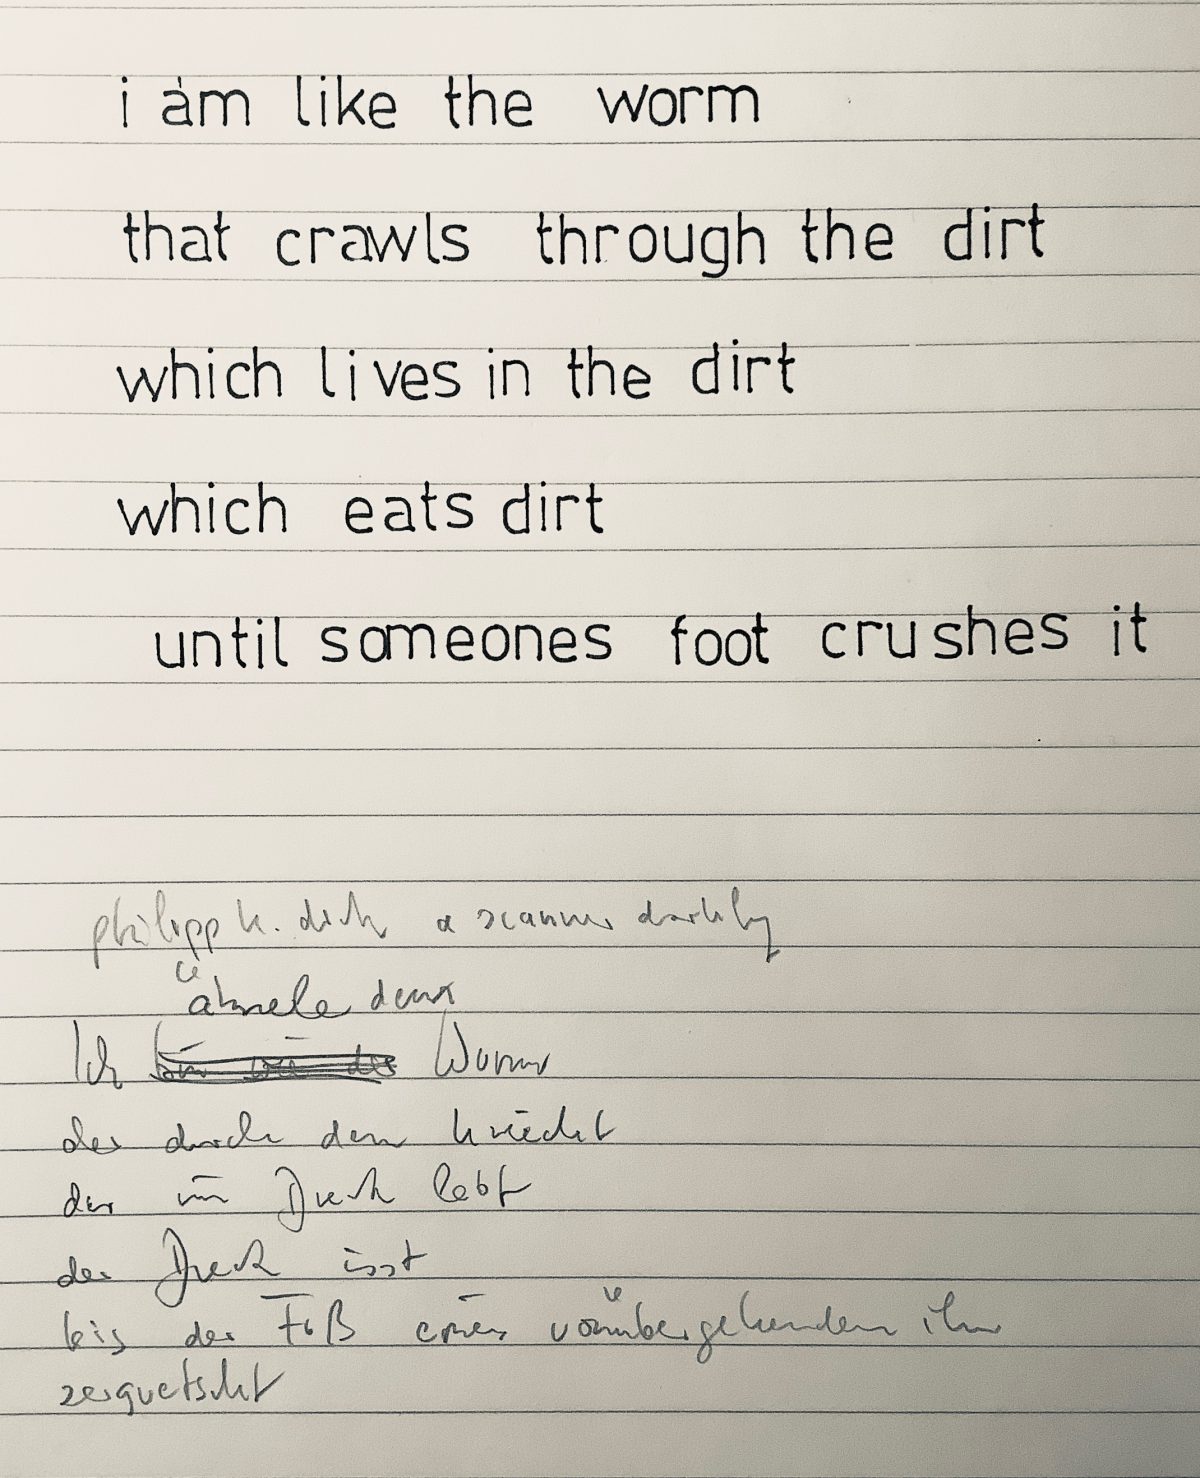 i am like the worm
that crawls through the dirt
which lives in the dirt
which eats dirt
until someones foot crushes it
philipp k. dick a scanner darkly
ähnele dem
Ich bin wie der Wurm
der durch den kriecht
der im Dreck lebt
der Dreck isst
bis der Fuß eines vorübergehenden ihn
zerquetscht